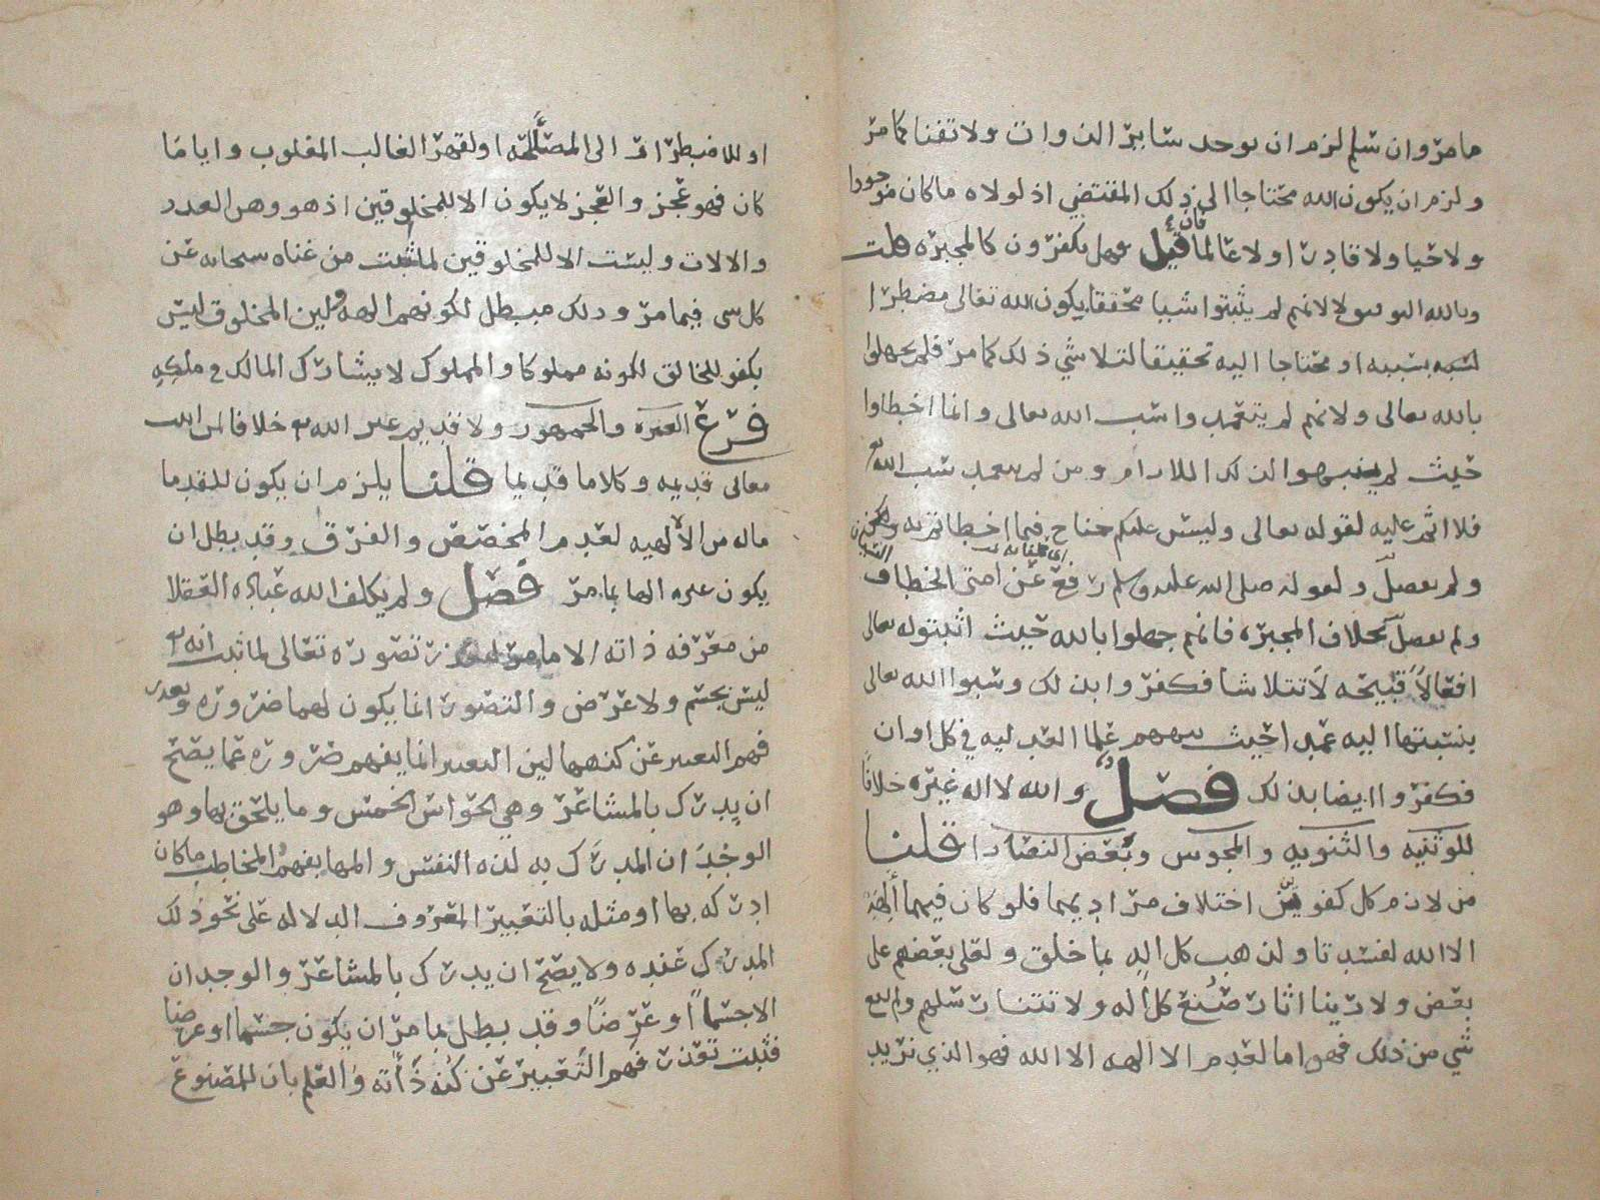 ما مر وان سلم لزم ان يوجد سائر الذوات ولا تفنا كما مر
ولزم ان يكون الله محتاجا الى ذلك المقتضي اذ لولاه ما كان موجودا
ولا حيا ولا قادرا ولا عالما فان قيل فهل يكفرون كالمجبره قلت
وبالله التوفيق لا لانهم لم يثبتوا شيا محققا يكون الله تعالى مضطرا
بسببه او محتاجا اليه تحقيقا لتلاشي ذلك كما مر فلم يجهلوا
بالله تعالى ولانهم لم يتعمدوا سب الله تعالى وانما اخطاوا
حيث لم ينتبهوا لذلك اللازم ومن لم يتعمد سب الله تع
فلا اثم عليه لقوله تعالى وليس عليكم جناح فيما اخطاتم به
ولم يفصل ولقوله صلى الله عليه وسلم رفع عن امتي الخطا
ولم يفصل بخلاف المجبره فانهم جهلوا بالله حيث اثبتوا له تعالى
افعالا قبيحه لا تتلاشا فكفروا بذلك وسبوا الله تعالى
بنسبتها اليه عمدا حيث علما العدليه في كل اوان
فكفروا ايضا بذلك فصل والله لا اله غيره خلافا
للوثنيه والثنويه والمجوس وبعض النصارا قلنا
من لازم كل كفوين اختلاف مراديهما فلو كان فيهما الهة
الا الله لفسدتا ولذهب كل اله بما خلق ولعلى بعضهم على
بعض ولراينا اثار صنع كل اله ولاتتنا رسلهم ولم يقع
شي من ذلك فهو اما لعدم الالهه الا الله فهو الذي نريد
او للاضطرار الى المصلحه او لقهر الغالب المغلوب وايا ما
كان فهو عجز والعجز لا يكون الا للمخلوقين اذ هو وهن العدد
والالات وليست الا للمخلوقين لما ثبت من غناه سبحانه عن
كل شي فيما مر وذلك مبطل لكونهم الهه ولين المخلوق ليس
بكفو للخالق لكونه مملوكا والمملوك لا يشارك المالك في ملكه
فرع العتره والجمهور ولا قديم غير الله تع خلافا لمن اثبت
معاني قديمه وكلاما قديما قلنا يلزم ان يكون للقدما
ماله من الالهيه لعدم المخصص والفرق وقد بطل ان
يكون غيره الها بما مر فصل ولم يكلف الله عباده العقلا
من معرفه ذاته الا ما مر تصوره تعالى لما ثبت انه تع
ليس بجسم ولا عرض والتصور انما يكون لهما ضروره وتعذر
فهم التعبير عن كنهها لين التعبير انما يفهم ضروره عما يصح
ان يدرك بالمشاعر وهي الحواس الخمس وما يلحق بها وهو
الوجدان المدرك به لذه النفس والمها يفهم المخاطب ما كان
ادركه بها او مثله بالتعبير المعروف الدلاله على نحو ذلك
المدرك عنده ولا يصح ان يدرك بالمشاعر والوجدان
الا جسما او عرضا وقد بطل بما مر ان يكون جسما او عرضا
فثبت تعذر فهم التعبير عن كنه ذاته والعلم بان للمصنوع